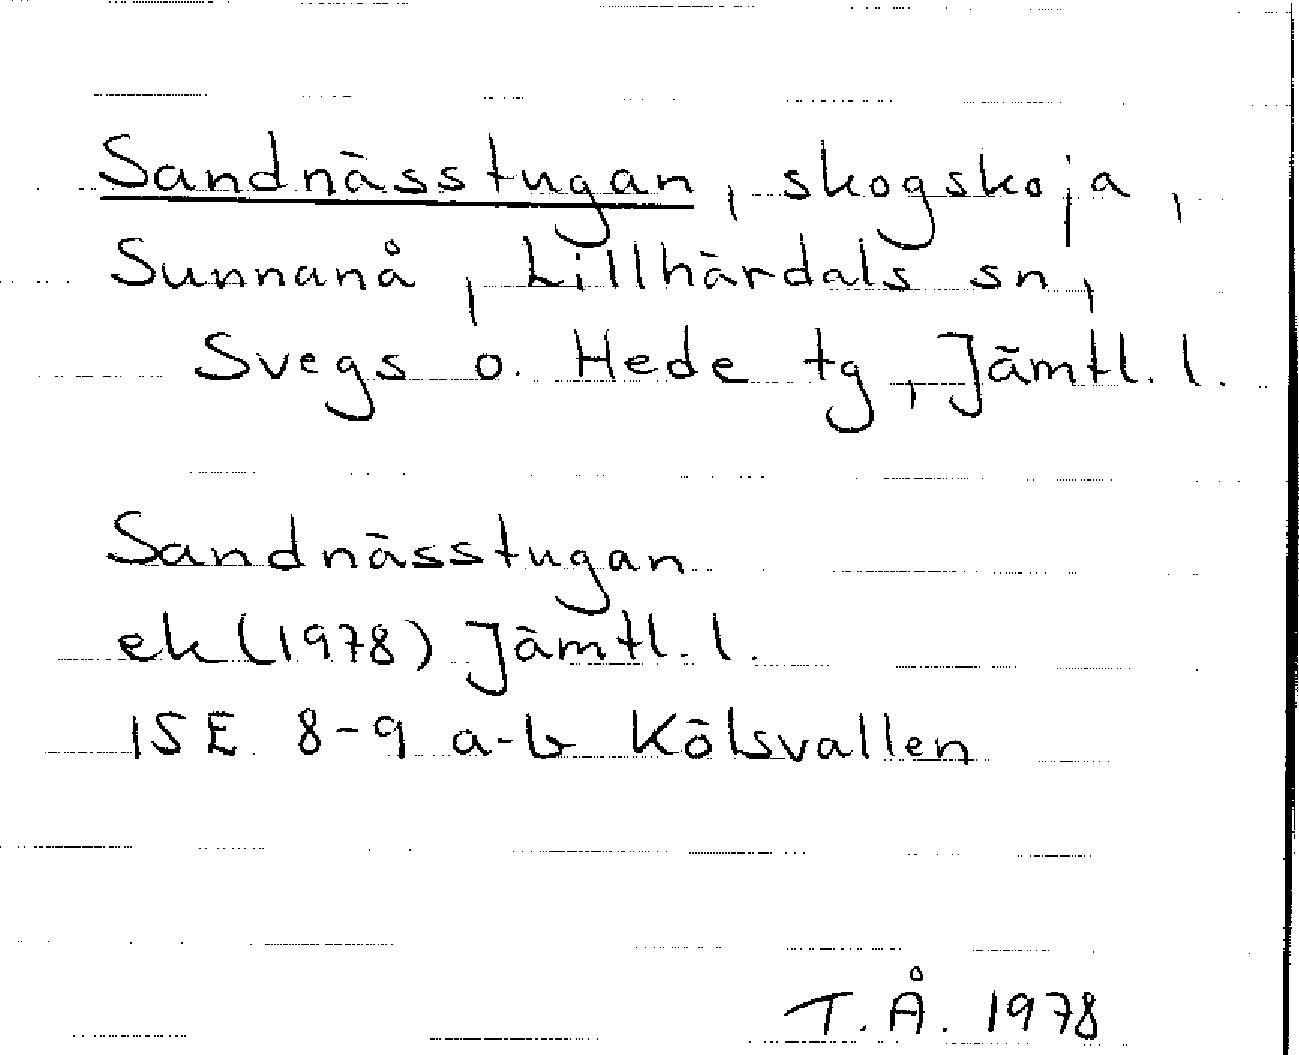 Sandnässtugan, skogskoja,
Sunnanå, Lillhärdals sn,
Svegs o. Hede tg, Jämtl. l.
Sandnässtugan
ek (1978) Jämtl. l.
15E 8-9 a-b Kölsvallen
T.Å. 1978